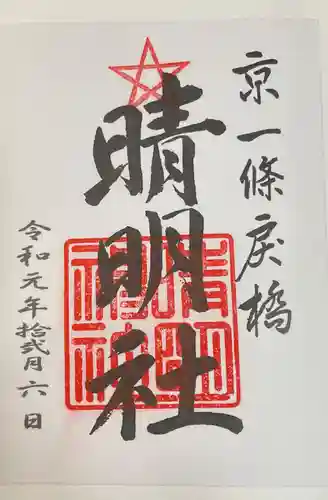 京一條戻橋
晴明社
晴明
神社
令和元年拾弐月六日